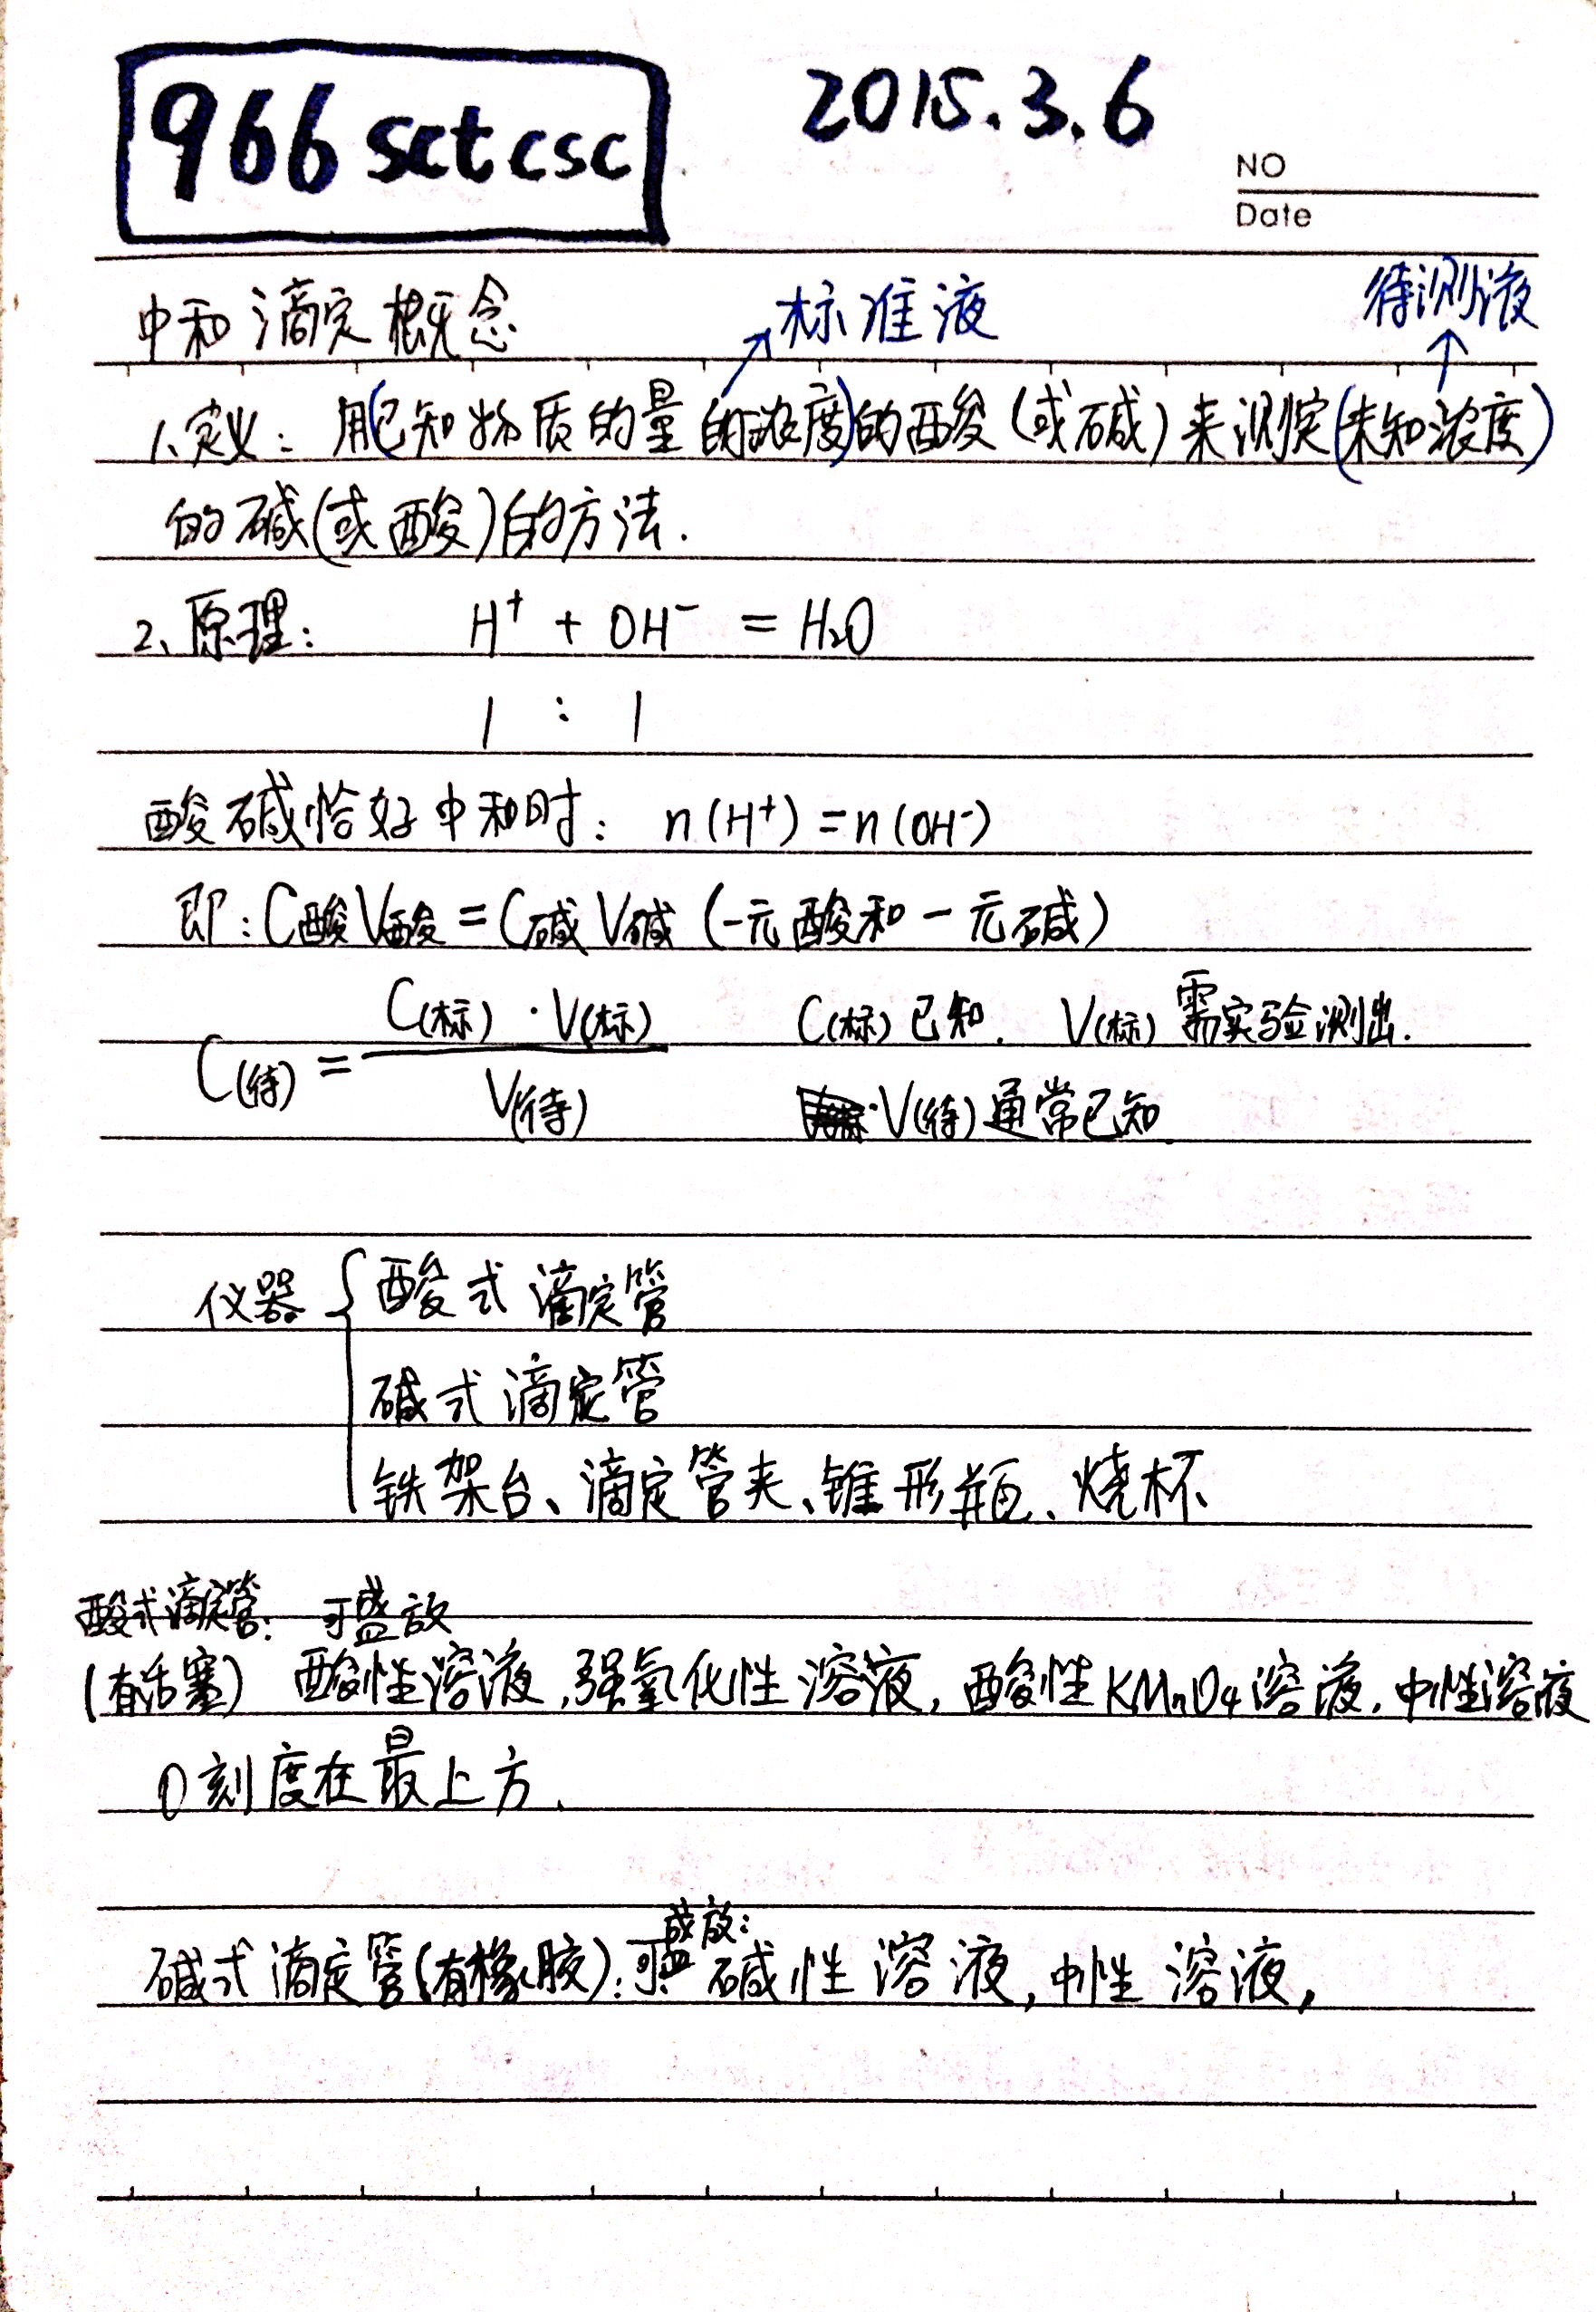 966 sctcsc
2015.3.6
NO
Date
中和滴定概念
标准液
待测液
1、定义：用(已知物质的量的浓度)的酸(或碱)来测定(未知浓度)
的碱(或酸)的方法.
2、原理： H⁺ + OH⁻ = H₂O
1 : 1
酸碱恰好中和时：n(H⁺)=n(OH⁻)
即：C酸V酸=C碱V碱(一元酸和一元碱)
C(待) = C(标)·V(标) / V(待)
C(标)已知. V(标)需实验测出.
V(待)通常已知.
仪器 { 酸式滴定管
碱式滴定管
铁架台、滴定管夹、锥形瓶、烧杯
酸式滴定管: 可盛放
(有活塞) 酸性溶液,强氧化性溶液,酸性KMnO4溶液,中性溶液
0刻度在最上方.
碱式滴定管(有橡胶):可盛放:碱性溶液,中性溶液,